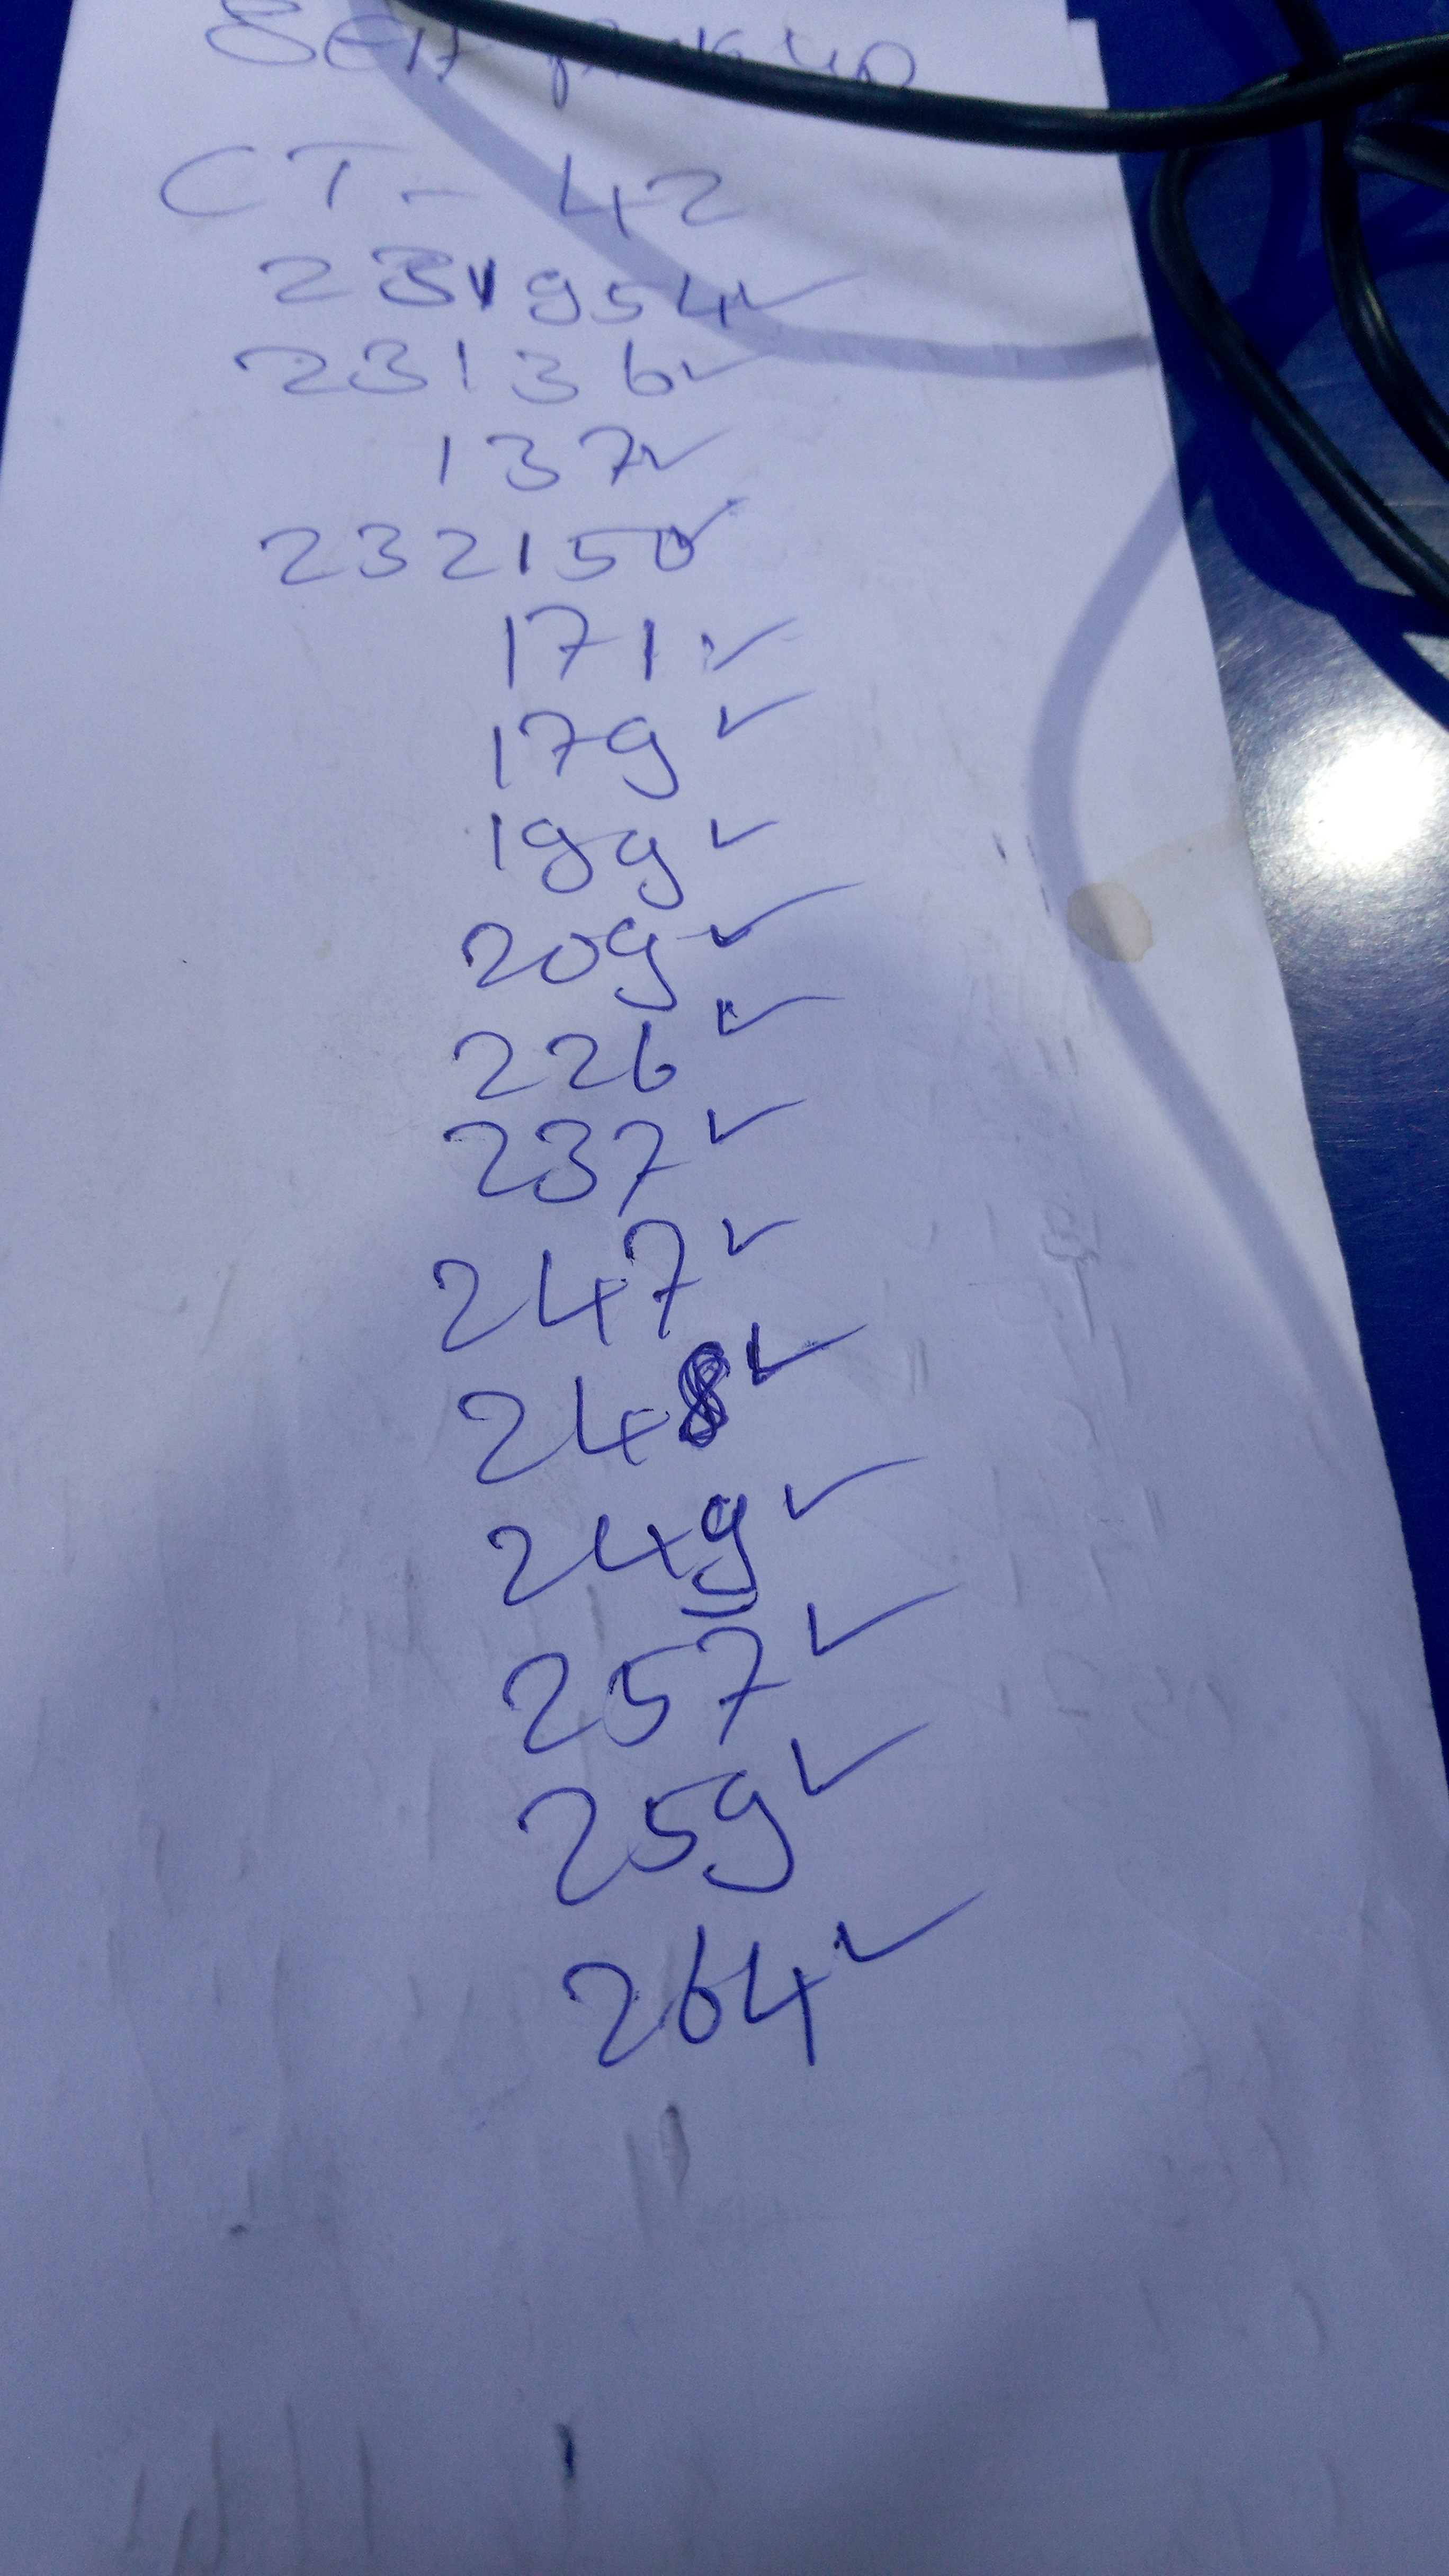 CT - 42
231954 ✓
23136 ✓
137 ✓
232150 ✓
171 ✓
179 ✓
199 ✓
209 ✓
226 ✓
237 ✓
247 ✓
248 ✓
249 ✓
257 ✓
259 ✓
264 ✓